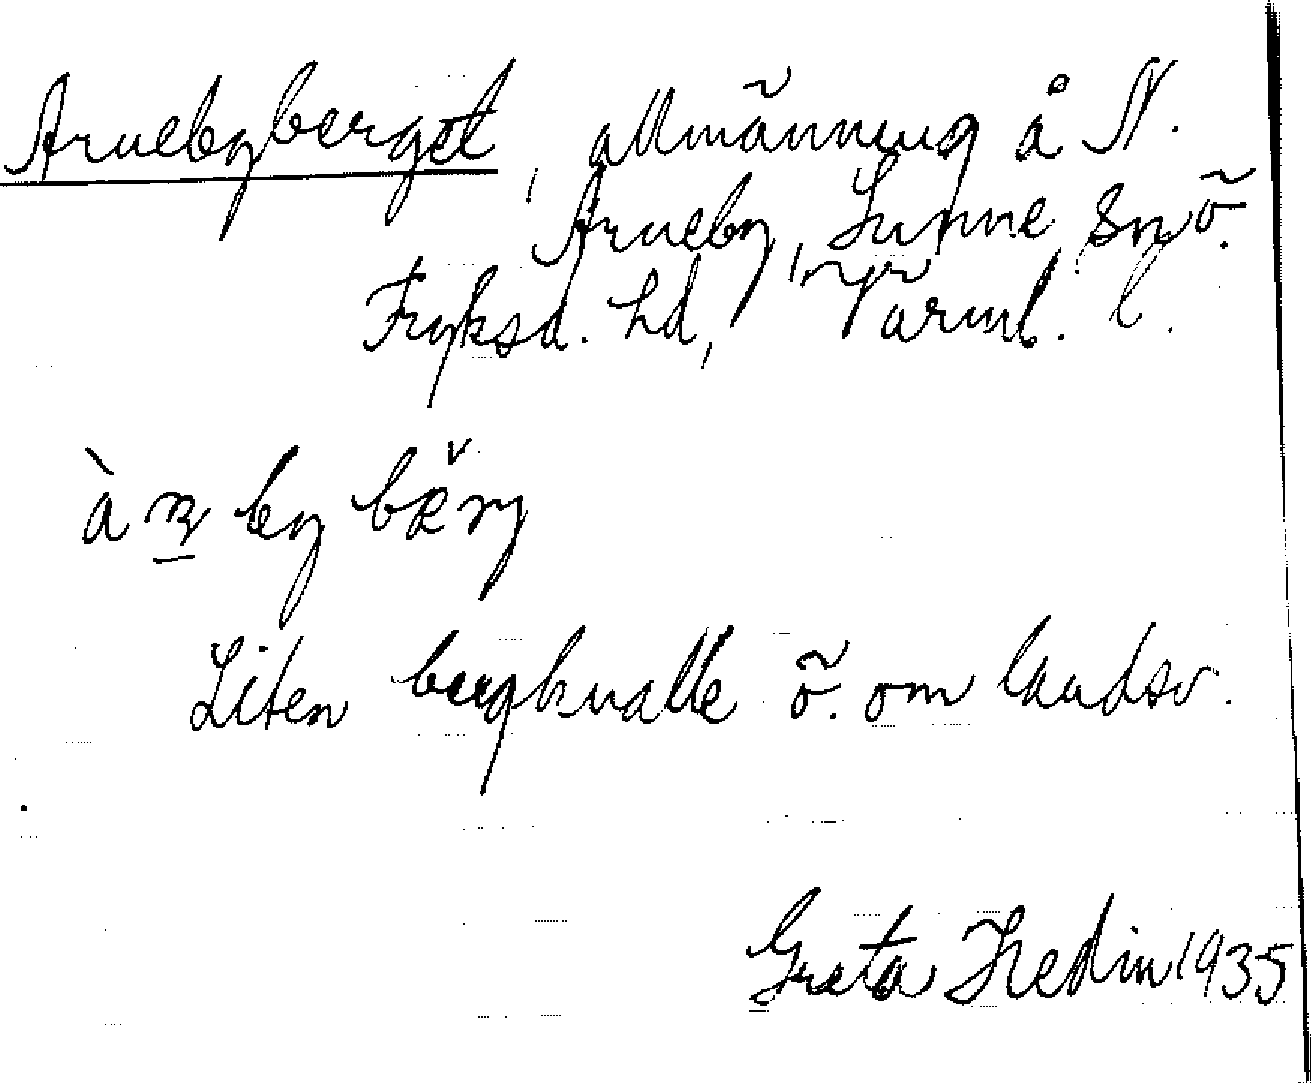 Arnebyberget, allmänning å N.
Arneby, Sunne sn, ö.
Fryksd. hd, Värml. l.
Liten bergknalle ö. om landsv.
Greta Hedin 1935